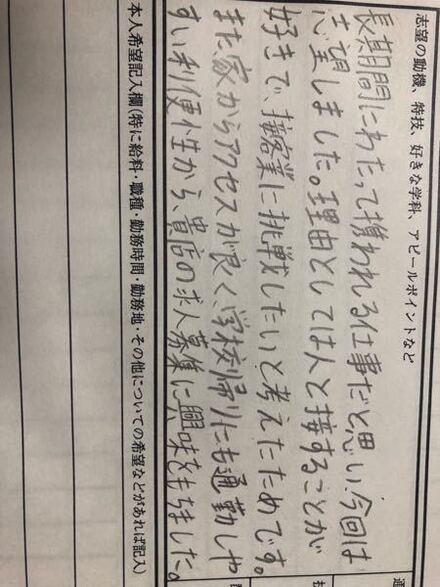 志望の動機、特技、好きな学科、アピールポイントなど
長期間にわたって携われる仕事だと思い、今回は
志望しました。理由としては人と接することが
好きで、接客業に挑戦したいと考えたためです。
また家からアクセスが良く、学校帰りにも通勤しや
すい利便性から、貴店の求人募集に興味をもちました。
本人希望記入欄(特に給料・職種・勤務時間・勤務地・その他についての希望などがあれば記入)